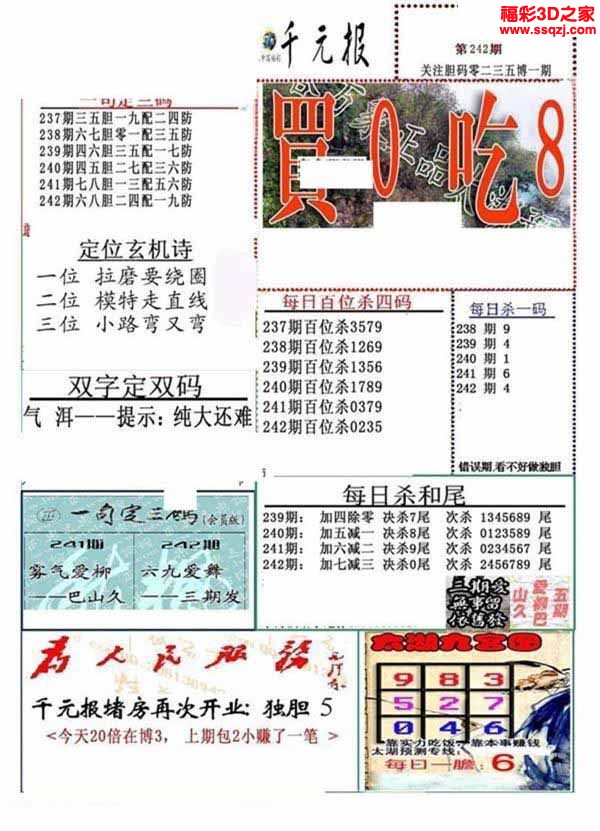 福彩3D之家
www.ssqzj.com
千元报
第242期
关注胆码零二三五博一期
買0吃8
一句定三码
237期三五胆一九配二四防
238期六七胆零一配三五防
239期四六胆三五配一七防
240期四五胆二七配三六防
241期七八胆一三配五六防
242期六八胆二四配一九防
定位玄机诗
一位 拉磨要绕圈
二位 模特走直线
三位 小路弯又弯
每日百位杀四码
237期百位杀3579
238期百位杀1269
239期百位杀1356
240期百位杀1789
241期百位杀0379
242期百位杀0235
每日杀一码
238 期 9
239 期 4
240 期 1
241 期 6
242 期 4
错误期,看不好做独胆
双字定双码
气 洱——提示:纯大还难
一句定三码(会员版)
241期
雾气爱柳
——巴山久
242期
六九爱舞
——三期发
每日杀和尾
239期: 加四除零 决杀7尾 次杀 1345689 尾
240期: 加五减一 决杀8尾 次杀 0123589 尾
241期: 加六减二 决杀9尾 次杀 0234567 尾
242期: 加七减三 决杀0尾 次杀 2456789 尾
五湖
愛柳巴
山久
为人民服务
千元报堵房再次开业: 独胆 5
<今天20倍在博3, 上期包2小赚了一笔 >
太湖九宫图
9 8 3
5 2 7
0 4 6
靠实力吃饭,靠本事赚钱
太湖预测专线:
每日一胆: 6